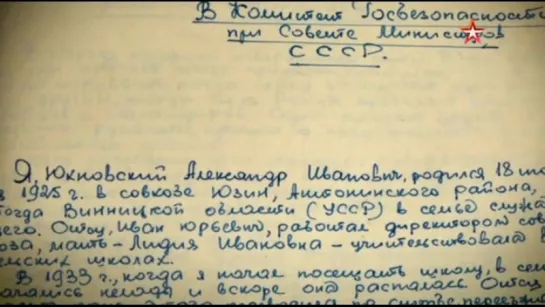 В Комитет Госбезопасности
при Совете Министров
СССР.
Я, Юхновский Александр Иванович, родился 18
1925 г. в совхозе Юзин, Антонинского района,
тогда Винницкой области (УССР) в семье служа
щего. Отец, Иван Юрьевич, работал директором сов
хоза, мать – Лидия Ивановна – учительствовала в
сельских школах.
В 1933 г., когда я начал посещать школу, в сем
начались нелады и вскоре она распалась. Отец